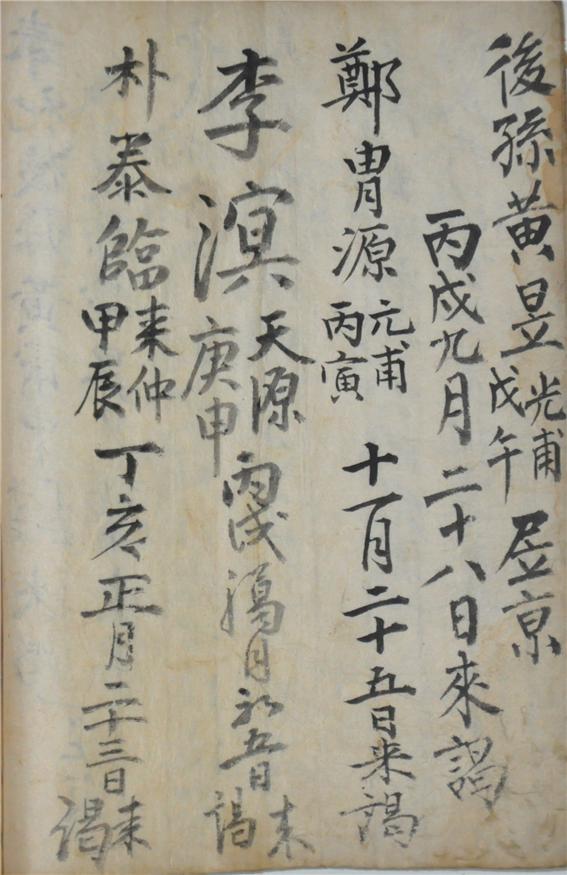 後孫黃昱光甫戊午居京
丙戌九月二十八日來謁
鄭胄源元甫丙寅十一月二十五日来謁
李溟天源庚申丙戌臈月初五日来謁
朴泰臨来仲甲辰丁亥正月二十三日来謁